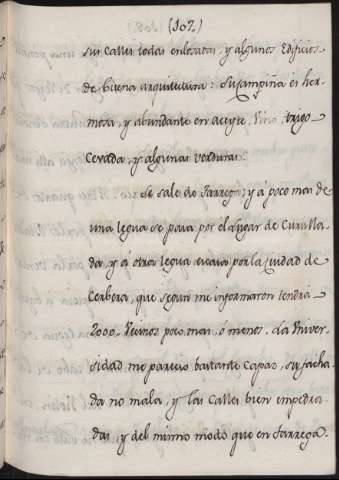 (107)
sus calles todas enlosadas, y algunos Edificios
de buena arquitectura: Su campiña es her-
mosa, y abundante en aceyte, vino, trigo
Cevada, y algunas verduras.
Se sale de Tarrega, y á poco mas de
una legua se pasa por el Lugar de Curulla-
da, y á otra legua escasa por la Ciudad de
Cerbera, que segun me informaron tendrá
2000. Vecinos poco mas ó menos. La Univer-
sidad me pareció bastante capaz, su facha-
da no mala, y las calles bien empedra-
das, y del mismo modo que en Tarrega.